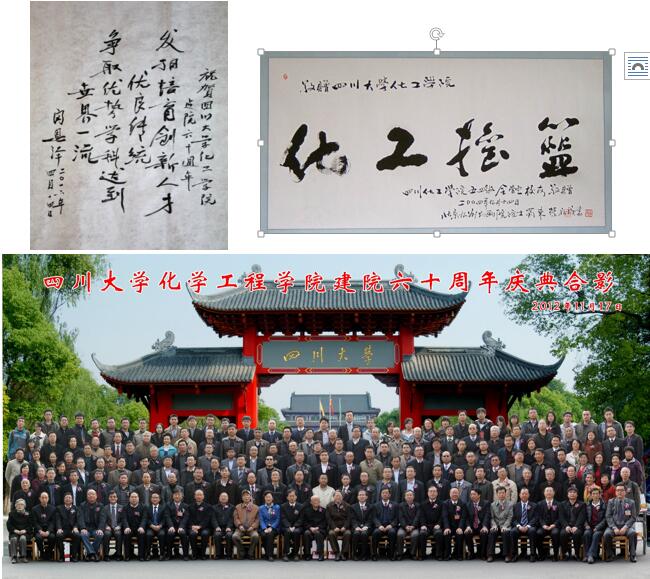 祝贺四川大学化工学院
建院六十周年
发扬培育创新人才
优良传统
争取优势学科达到
世界一流
闵恩泽
敬赠四川大学化工学院
化工摇篮
四川化工学院五四级全体校友敬赠
四川大学化学工程学院建院六十周年庆典合影
2012年11月17日
四川大學